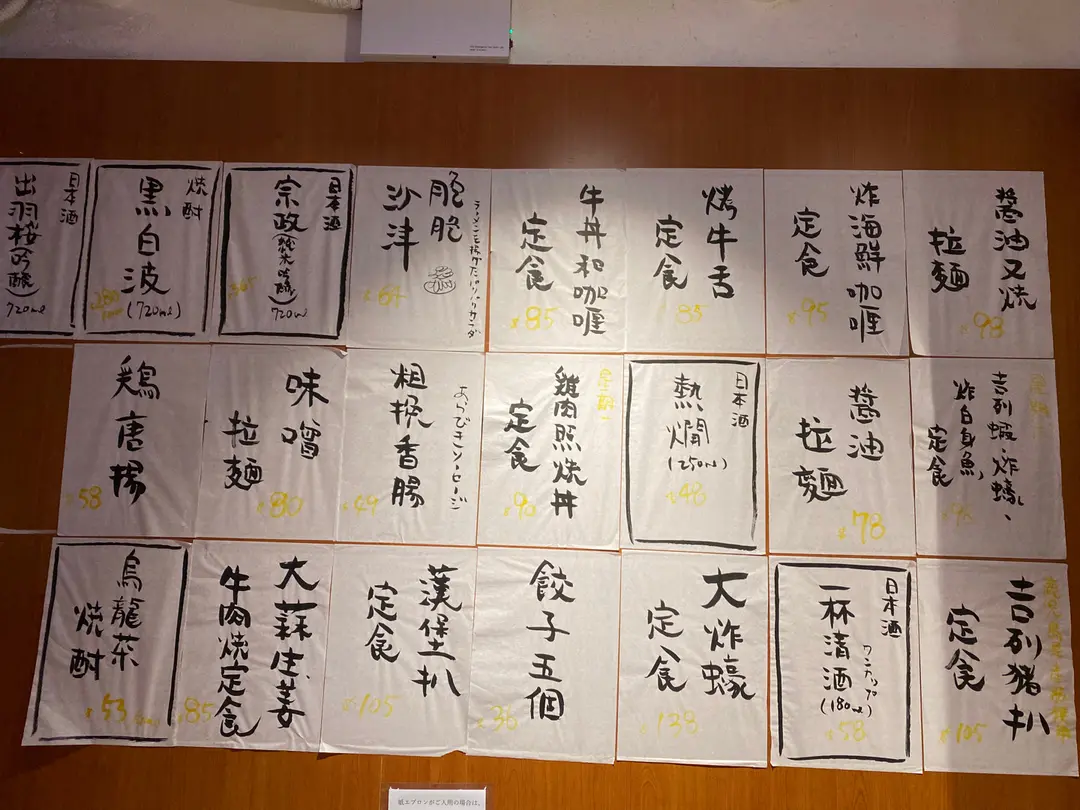 醬油叉燒
拉麵
¥98
炸海鮮咖喱
定食
¥95
烤牛舌
定食
85
牛丼和咖喱
定食
¥85
脆脆
沙津
¥64
日本酒
宗政
720ml
焼酎
黒白波
(720ml)
日本酒
出羽桜吟醸)
720ml
吉列蝦、炸蠔、
炸白身魚
定食
醬油
拉麵
¥78
日本酒
熱燗
(250ml)
¥48
星期一
雞肉照燒丼
定食
¥90
あらびきソーセージ
粗挽香腸
¥49
味噌
拉麵
¥80
鶏唐揚
¥58
吉列豬扒
定食
¥105
日本酒
一杯清酒
ワンカップ
(180ml)
¥58
大炸蠔
定食
¥138
餃子五個
¥36
漢堡扒
定食
¥105
大蒜生姜
牛肉燒定食
¥85
烏龍茶
焼酎
¥53
紙エプロンがご入用の場合は、